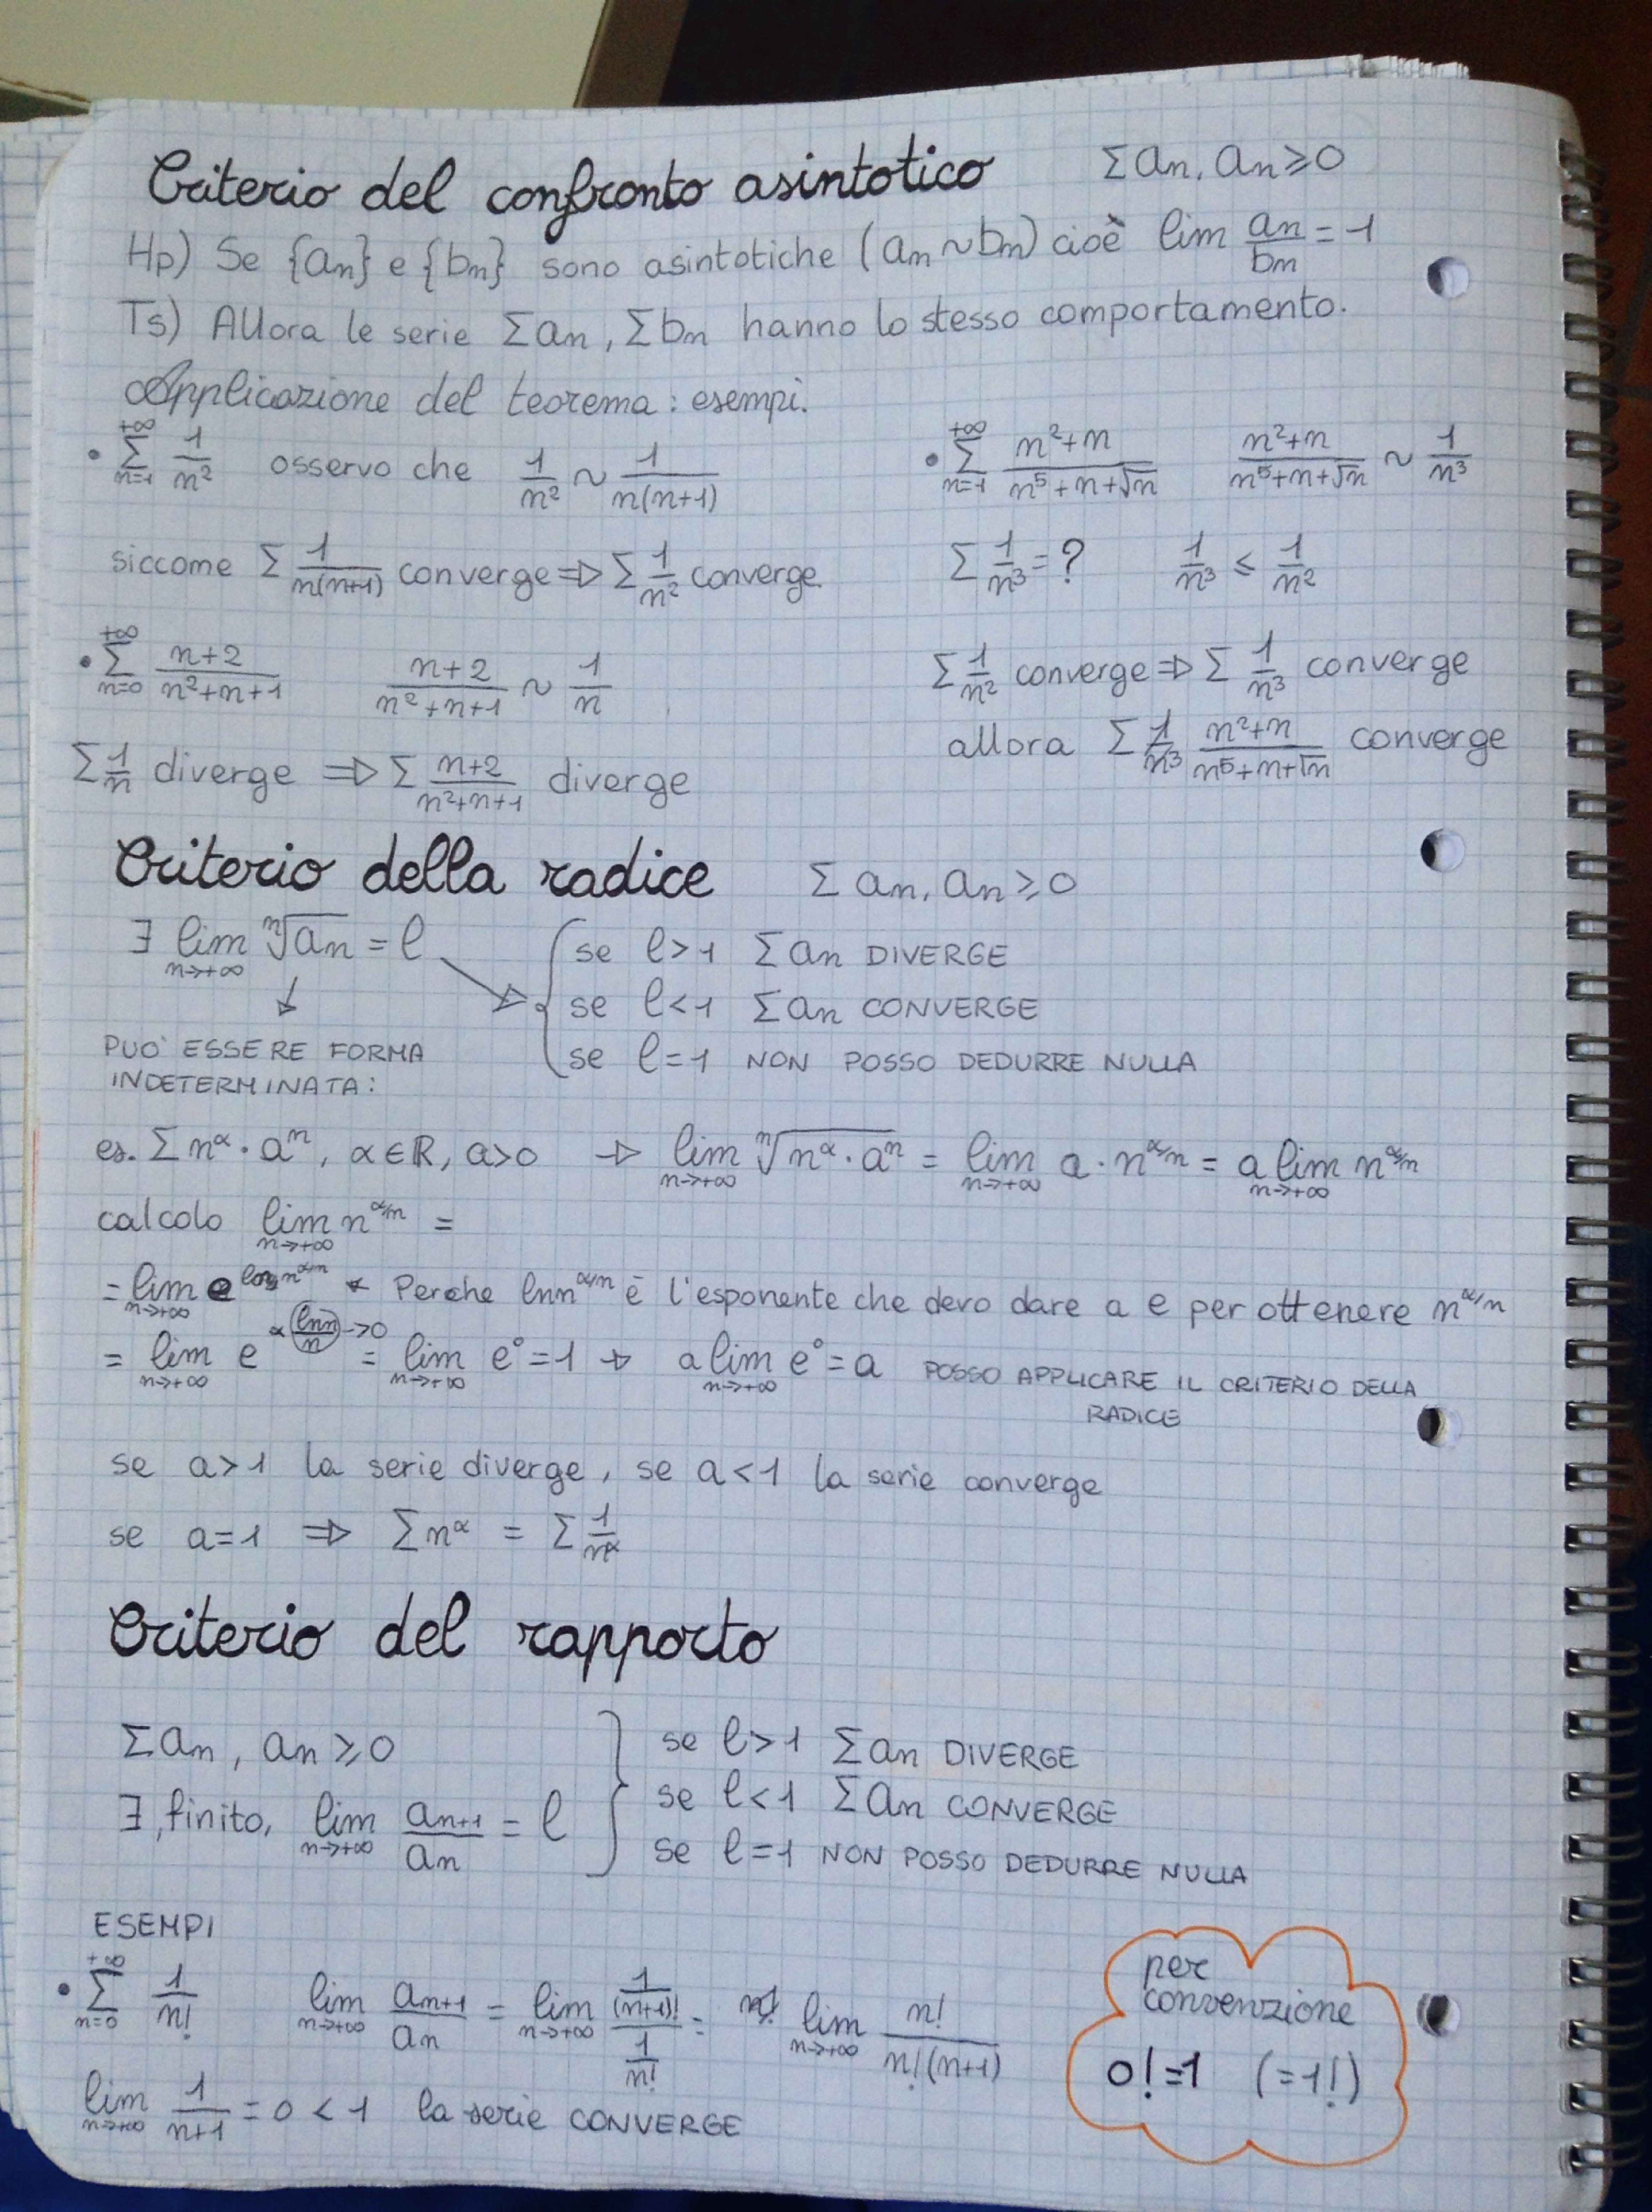 Criterio del confronto asintotico Σan, an≥0
Hp) Se {an} e {bn} sono asintotiche (an~bn) cioè lim an/bn = 1
Ts) Allora le serie Σan, Σbn hanno lo stesso comportamento.
Applicazione del teorema: esempi.
• +∞ Σ n=1 1/n² osservo che 1/n² ~ 1/n(n+1)
siccome Σ 1/n(n+1) converge ⇒ Σ 1/n² converge.
• +∞ Σ n=0 n+2/n²+n+1 n+2/n²+n+1 ~ 1/n
Σ 1/n diverge ⇒ Σ n+2/n²+n+1 diverge
• +∞ Σ n=1 n²+n/n⁵+n+√n n²+n/n⁵+n+√n ~ 1/n³
Σ 1/n³ = ? 1/n³ ≤ 1/n²
Σ 1/n² converge ⇒ Σ 1/n³ converge
allora Σ n²+n/n⁵+n+√n converge
Criterio della radice Σ an, an≥0
∃ lim n→+∞ ⁿ√an = l
se l>1 Σan DIVERGE
se l<1 Σan CONVERGE
se l=1 NON POSSO DEDURRE NULLA
PUO' ESSERE FORMA
INDETERMINATA:
es. Σ n^α · aⁿ, α∈ℝ, a>0 → lim n→+∞ ⁿ√n^α · aⁿ = lim n→+∞ a · n^α/n = a lim n→+∞ n^α/n
calcolo lim n→+∞ n^α/n =
= lim n→+∞ e^log n^α/n ← Perche lnn^α/n è l'esponente che devo dare a e per ottenere n^α/n
= lim n→+∞ e^α lnn/n →0 = lim n→+∞ e⁰ = 1 → a lim n→+∞ e⁰ = a POSSO APPLICARE IL CRITERIO DELLA
RADICE
se a>1 la serie diverge, se a<1 la serie converge
se a=1 ⇒ Σn^α = Σ 1/n^α
Criterio del rapporto
Σan, an≥0
∃, finito, lim n→+∞ an+1/an = l
se l>1 Σan DIVERGE
se l<1 Σan CONVERGE
se l=1 NON POSSO DEDURRE NULLA
ESEMPI
• +∞ Σ n=0 1/n! lim n→+∞ an+1/an = lim n→+∞ 1/(n+1)! / 1/n! = lim n→+∞ n!/n!(n+1)
lim n→+∞ 1/n+1 = 0 < 1 la serie CONVERGE
per
convenzione
0!=1 (=1!)